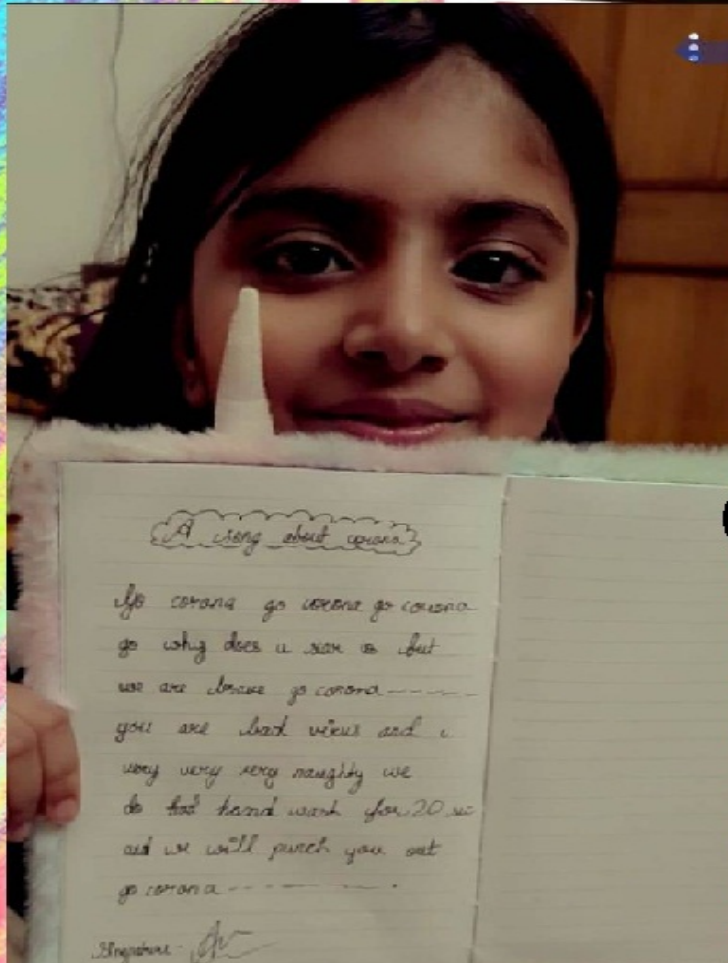 A song about corona
Go corona go corona go corona
go why does u scar us but
we are brave go corona -------
you are bad virus and
very very very naughty we
do hand wash for 20
and we will punch you out
go corona ---------- .